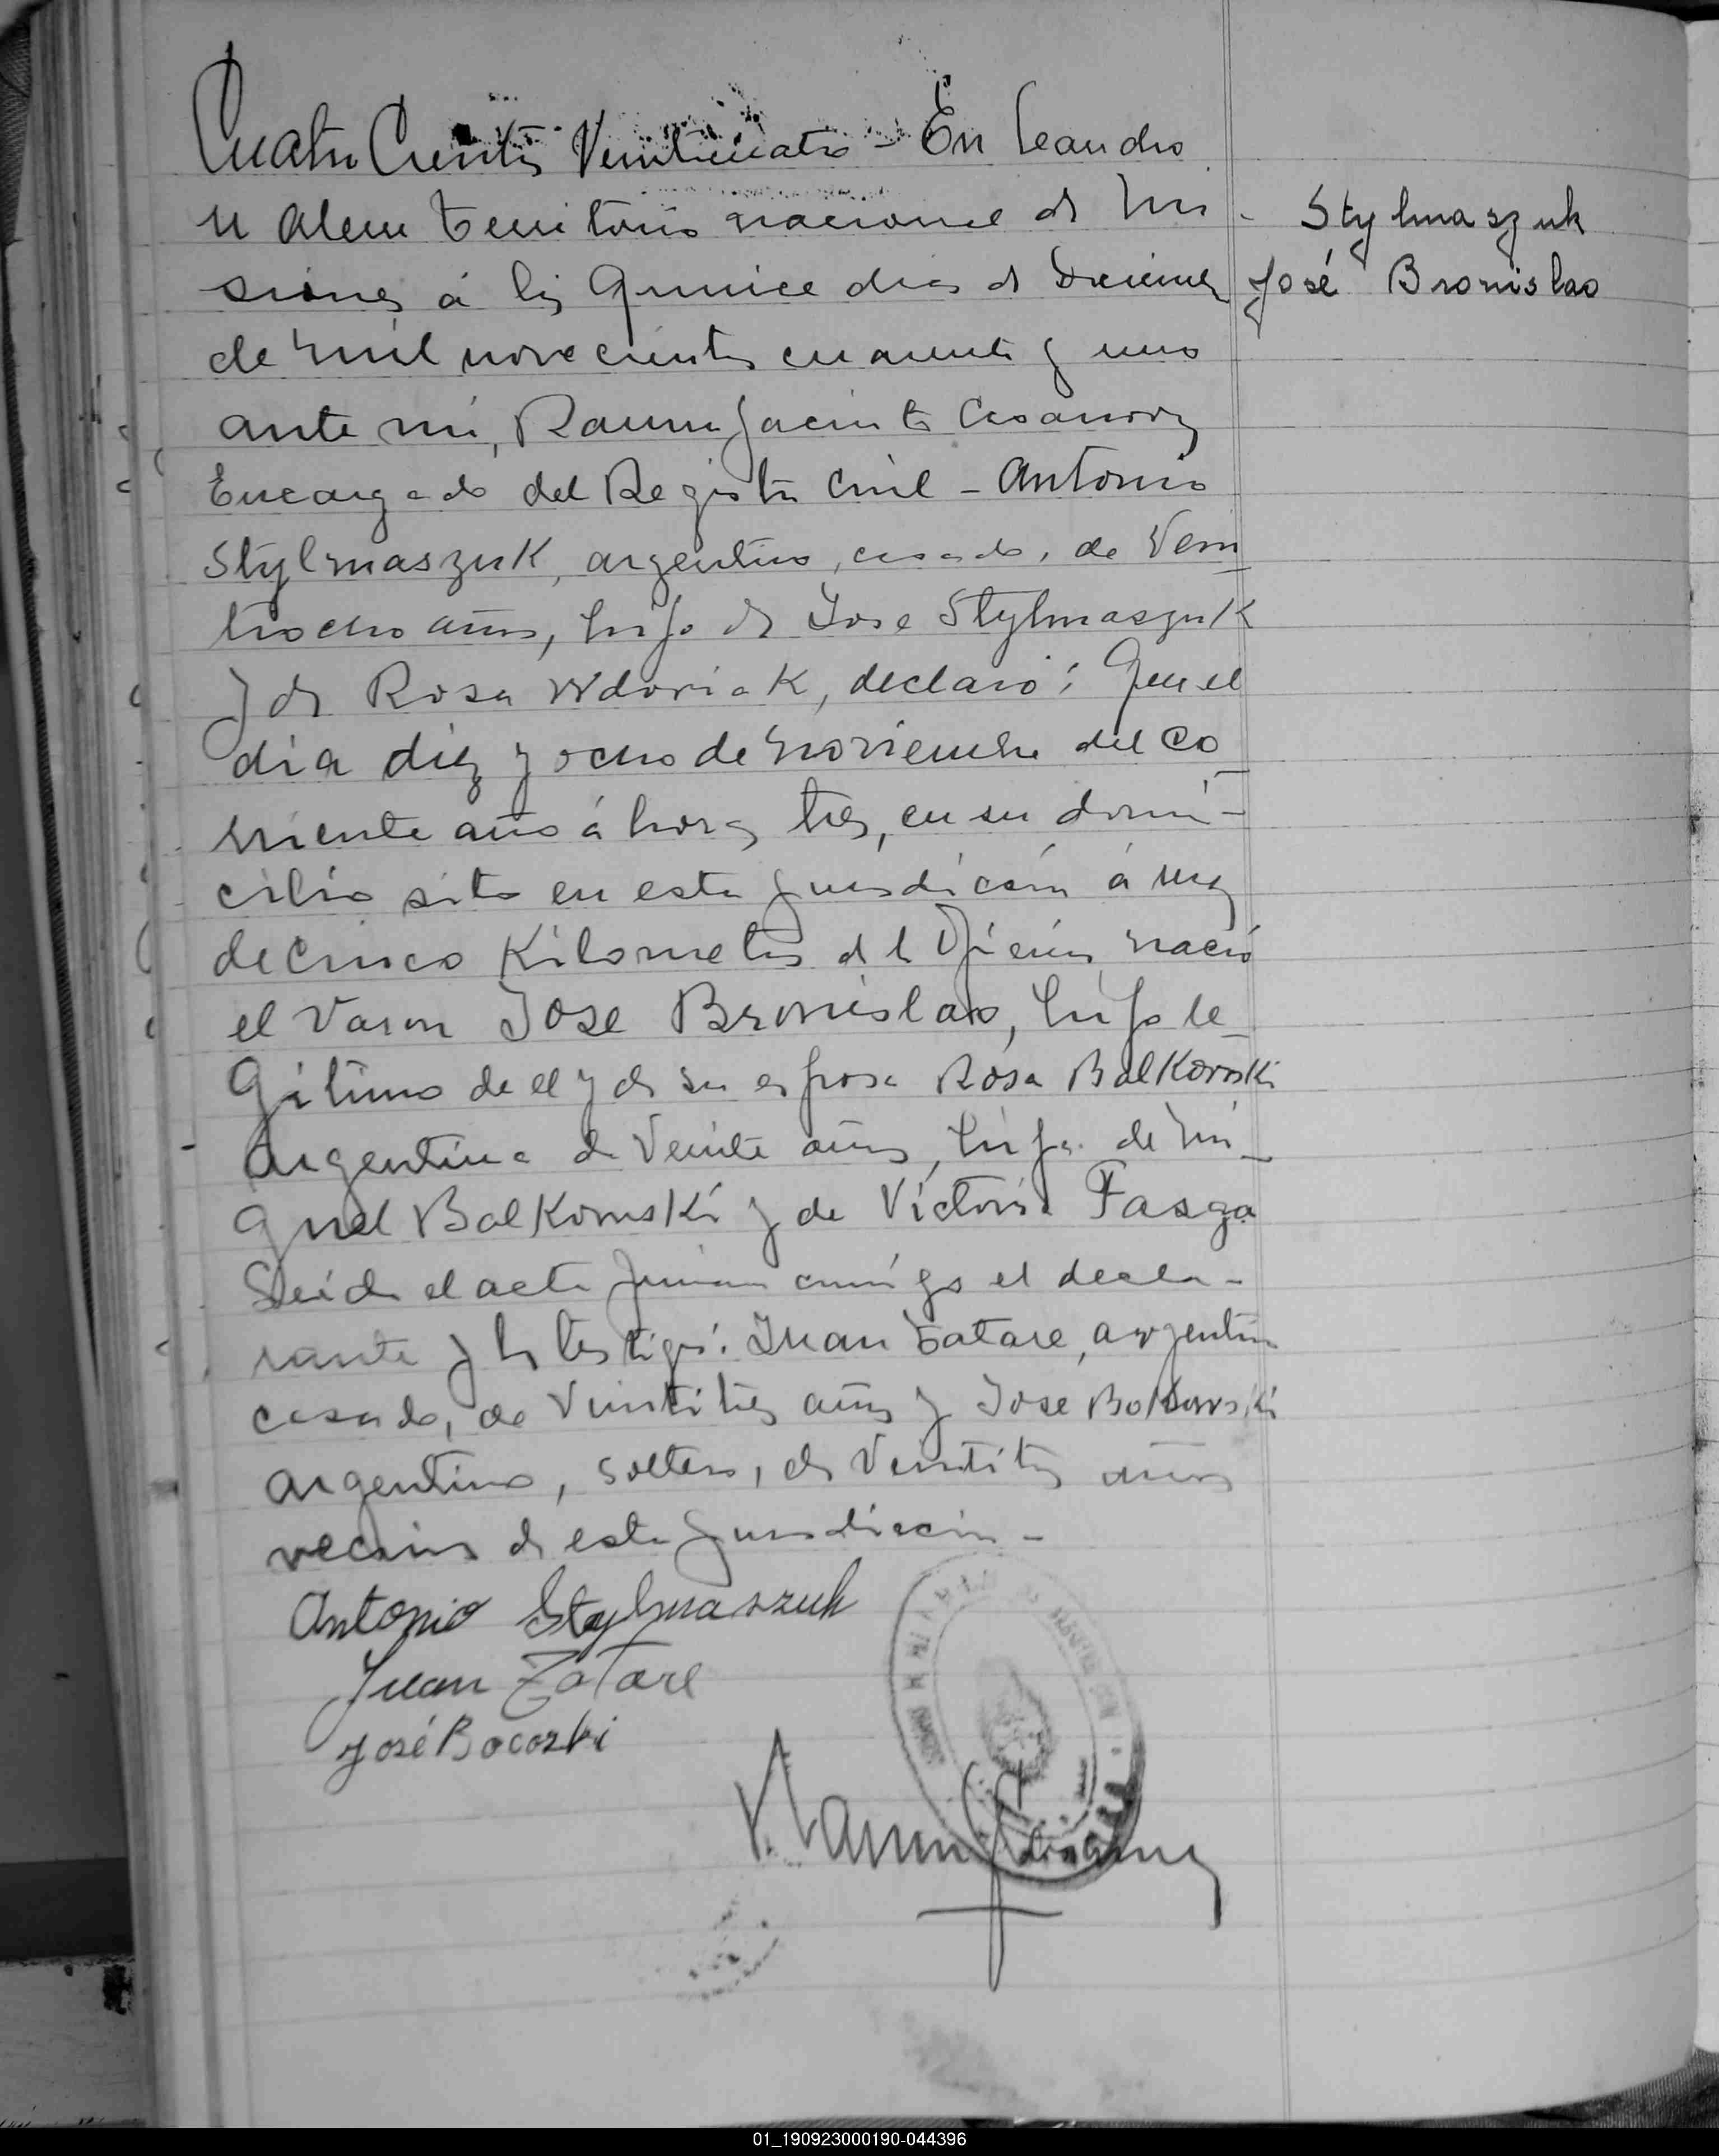 Cuatro Cientos Veinticuatro - En Leandro
N Alem Territorio nacional de Mi
siones á los Quince dias de Diciembre
de mil novecientos cuarenta y uno
ante mi, Ramon Jacinto Casanova
Encargado del Registro Civil - Antonio
Stylmaszuk, argentino, casado, de Vein
tiocho años, hijo de Jose Stylmaszuk
y de Rosa Wdoviak, declaró: Que el
dia diez y ocho de noviembre del co
rriente año á horas tres, en su domi-
cilio sito en esta jurisdicción á mas
de cinco Kilometros de la Oficina nació
el Varon Jose Bronislao, hijo le
gitimo de el y de su esposa Rosa Balkowski
argentina de Veinte años, hija de Mi
guel Balkowski y de Victoria Fasga
Leida el acta firman conmigo el decla-
rante y los testigos: Juan Zatare, argentino
casado, de Veintitres años y Jose Bolkowski
argentino, soltero, de Veintitres años
vecinos de esta jurisdiccion -
Antonio Stylmaszuk
Juan Zatare
José Bocoski
Stylmaszuk
José Bronislao
01_190923000190-044396